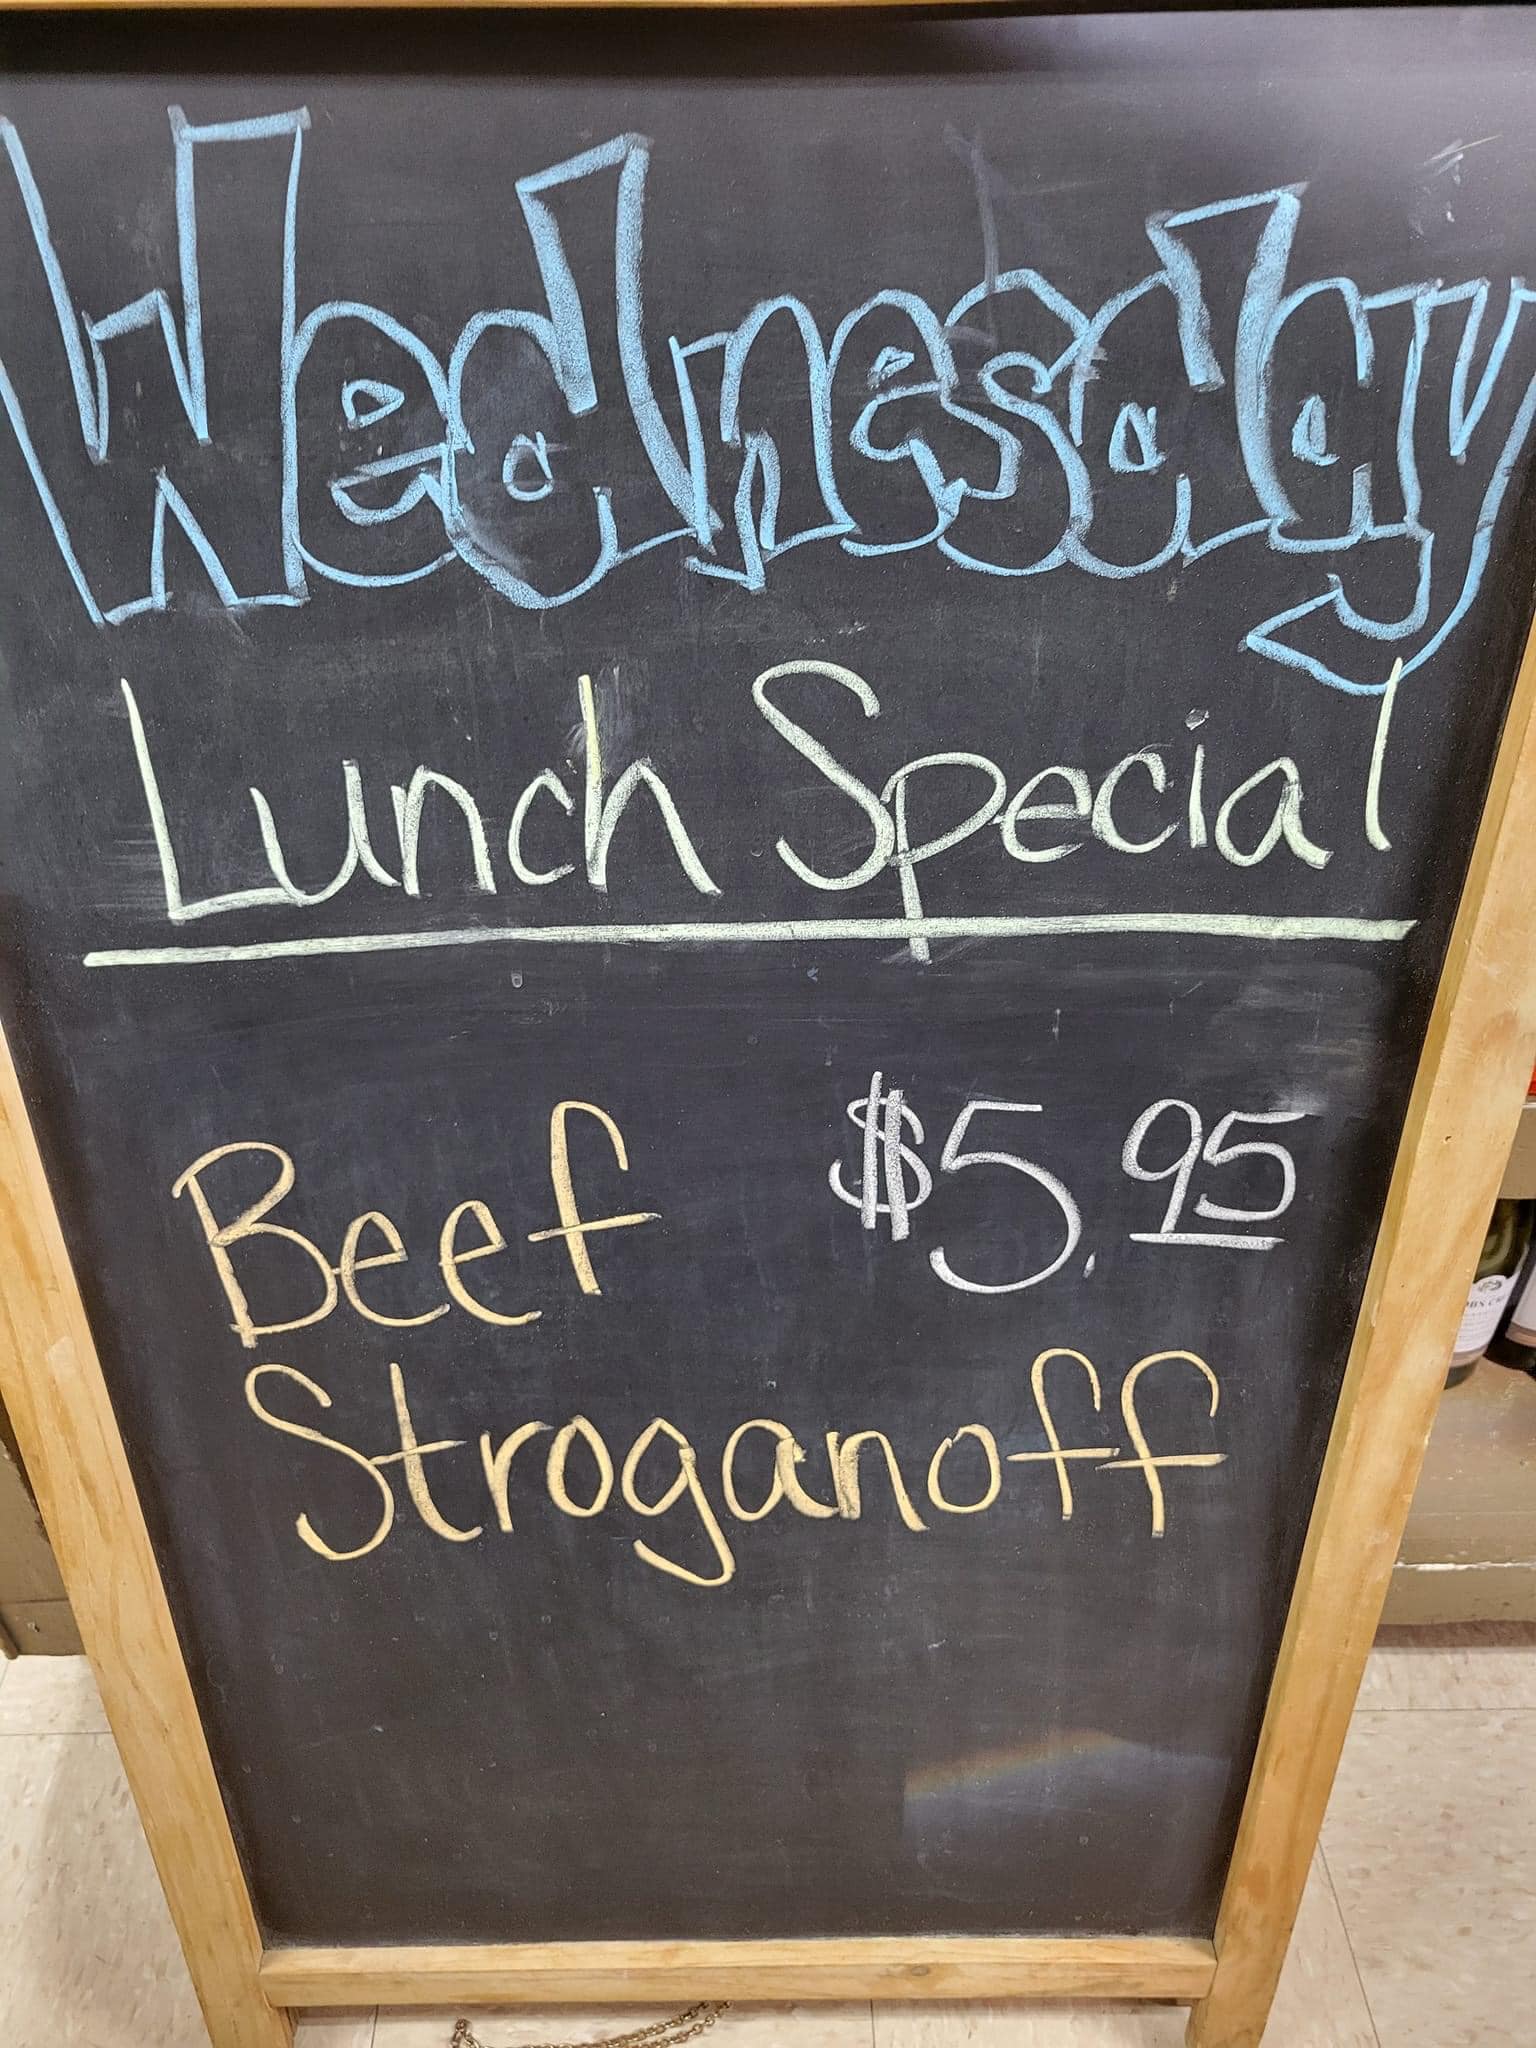 Wednesday
Lunch Special
Beef $5.95
Stroganoff